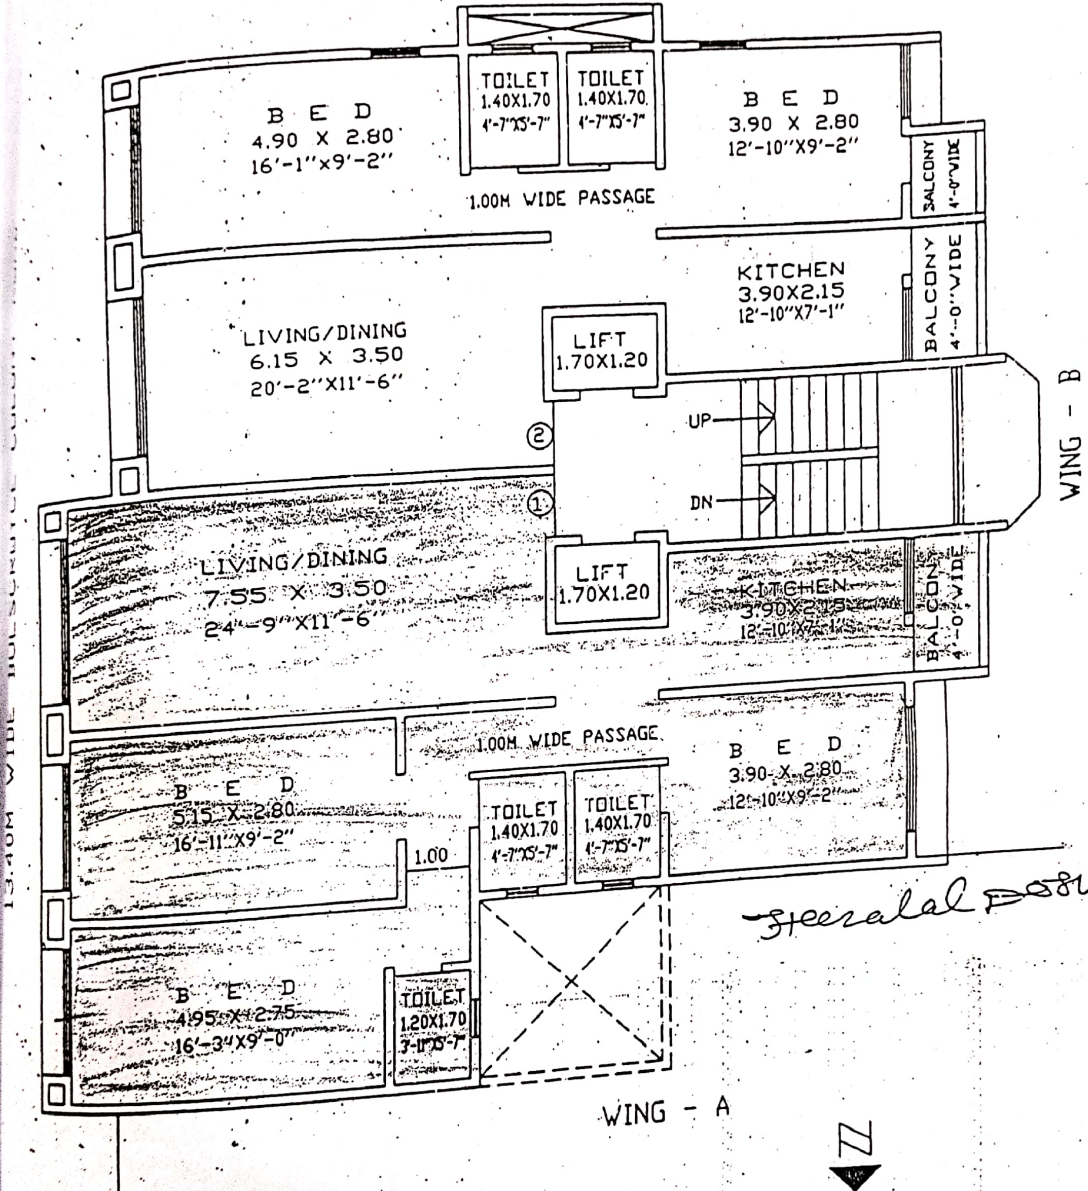 TOILET
1.40X1.70
4'-7"X5'-7"
TOILET
1.40X1.70
4'-7"X5'-7"
B E D
4.90 X 2.80
16'-1"x9'-2"
B E D
3.90 X 2.80
12'-10"X9'-2"
BALCONY
4'-0"WIDE
1.00M WIDE PASSAGE
KITCHEN
3.90X2.15
12'-10"X7'-1"
BALCONY
4'-0"WIDE
LIVING/DINING
6.15 X 3.50
20'-2"X11'-6"
LIFT
1.70X1.20
UP
2
WING - B
1
DN
LIVING/DINING
7.55 X 3.50
24'-9"X11'-6"
LIFT
1.70X1.20
KITCHEN
3.90X2.15
12'-10"X7'-1"
BALCON
4'-0"WIDE
1.00M WIDE PASSAGE
B E D
3.90 X 2.80
12'-10"X9'-2"
B E D
5.15 X 2.80
16'-11"X9'-2"
TOILET
1.40X1.70
4'-7"X5'-7"
TOILET
1.40X1.70
4'-7"X5'-7"
1.00
B E D
4.95 X 2.75
16'-3"X9'-0"
TOILET
1.20X1.70
3'-11"X5'-7"
WING - A
N
13.40M WIDE